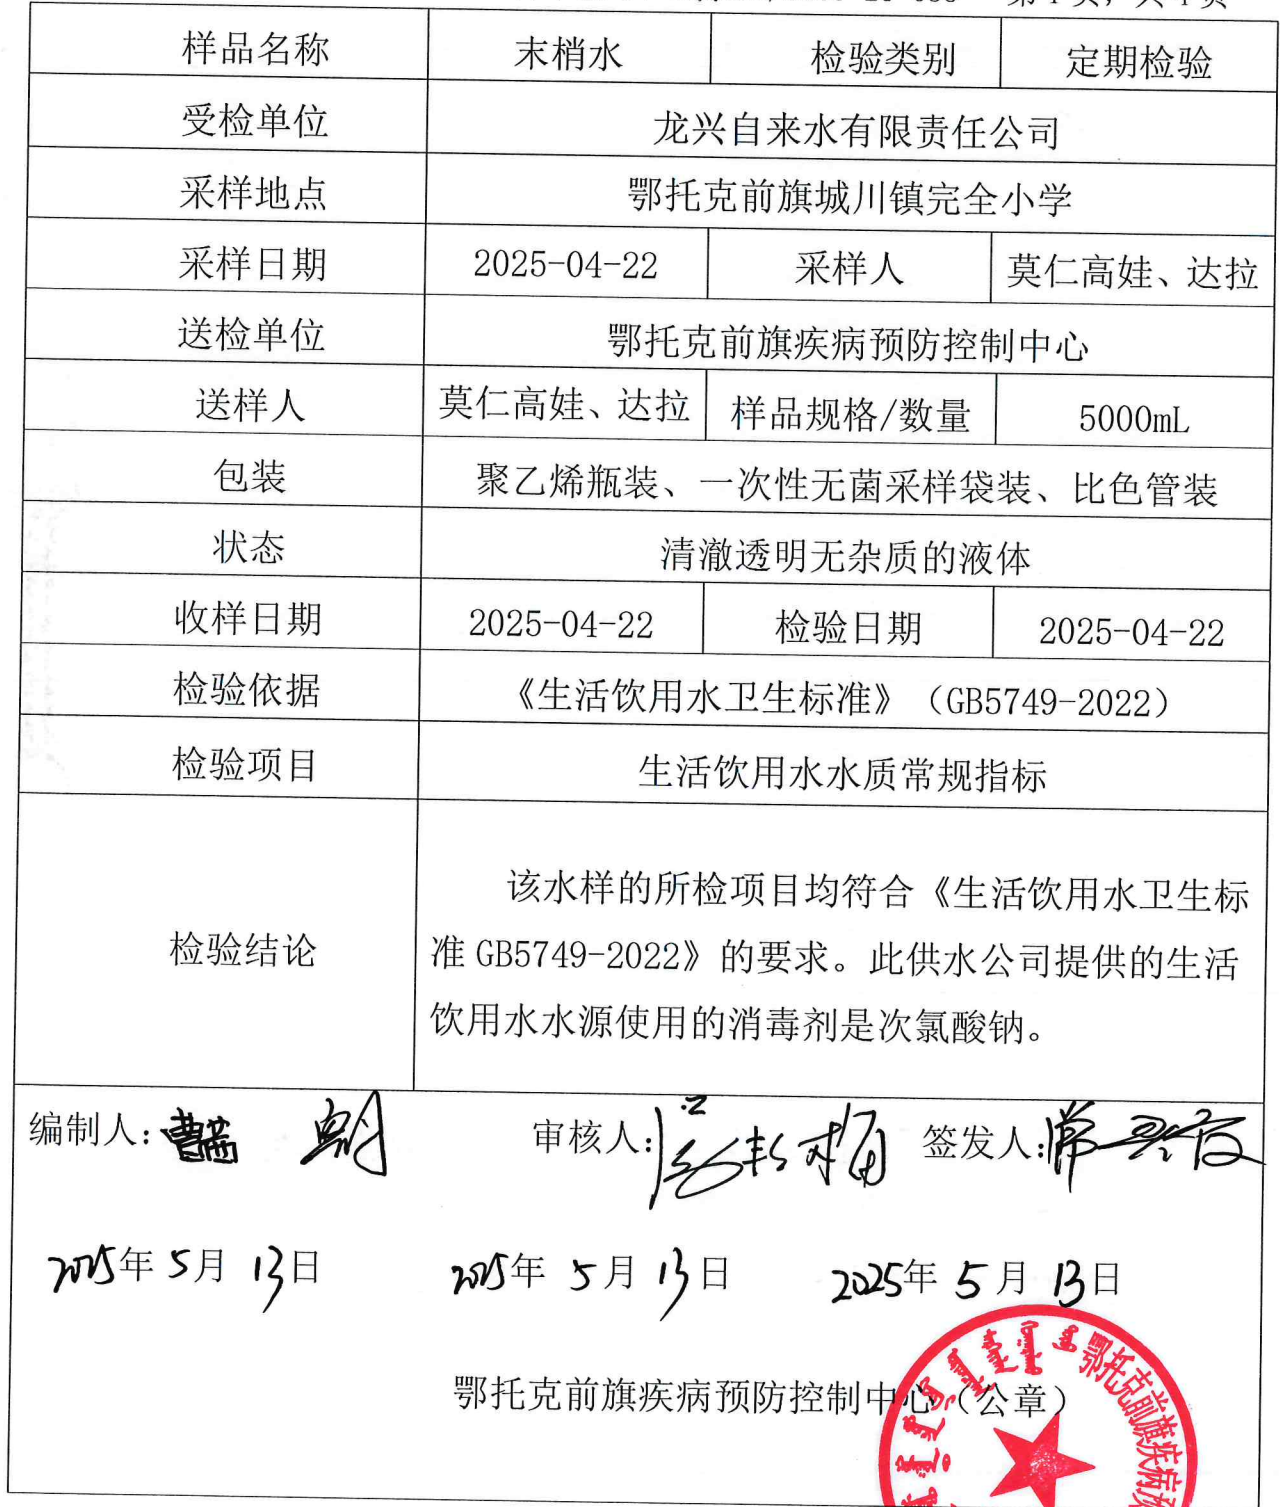 样品名称 末梢水 检验类别 定期检验
受检单位 龙兴自来水有限责任公司
采样地点 鄂托克前旗城川镇完全小学
采样日期 2025-04-22 采样人 莫仁高娃、达拉
送检单位 鄂托克前旗疾病预防控制中心
送样人 莫仁高娃、达拉 样品规格/数量 5000mL
包装 聚乙烯瓶装、一次性无菌采样袋装、比色管装
状态 清澈透明无杂质的液体
收样日期 2025-04-22 检验日期 2025-04-22
检验依据 《生活饮用水卫生标准》（GB5749-2022）
检验项目 生活饮用水水质常规指标
检验结论
该水样的所检项目均符合《生活饮用水卫生标
准 GB5749-2022》的要求。此供水公司提供的生活
饮用水水源使用的消毒剂是次氯酸钠。
编制人: 审核人: 签发人:
2025年 5月 13日 2025年 5月 13日 2025年 5月 13日
鄂托克前旗疾病预防控制中心（公章）
鄂托克前旗疾病